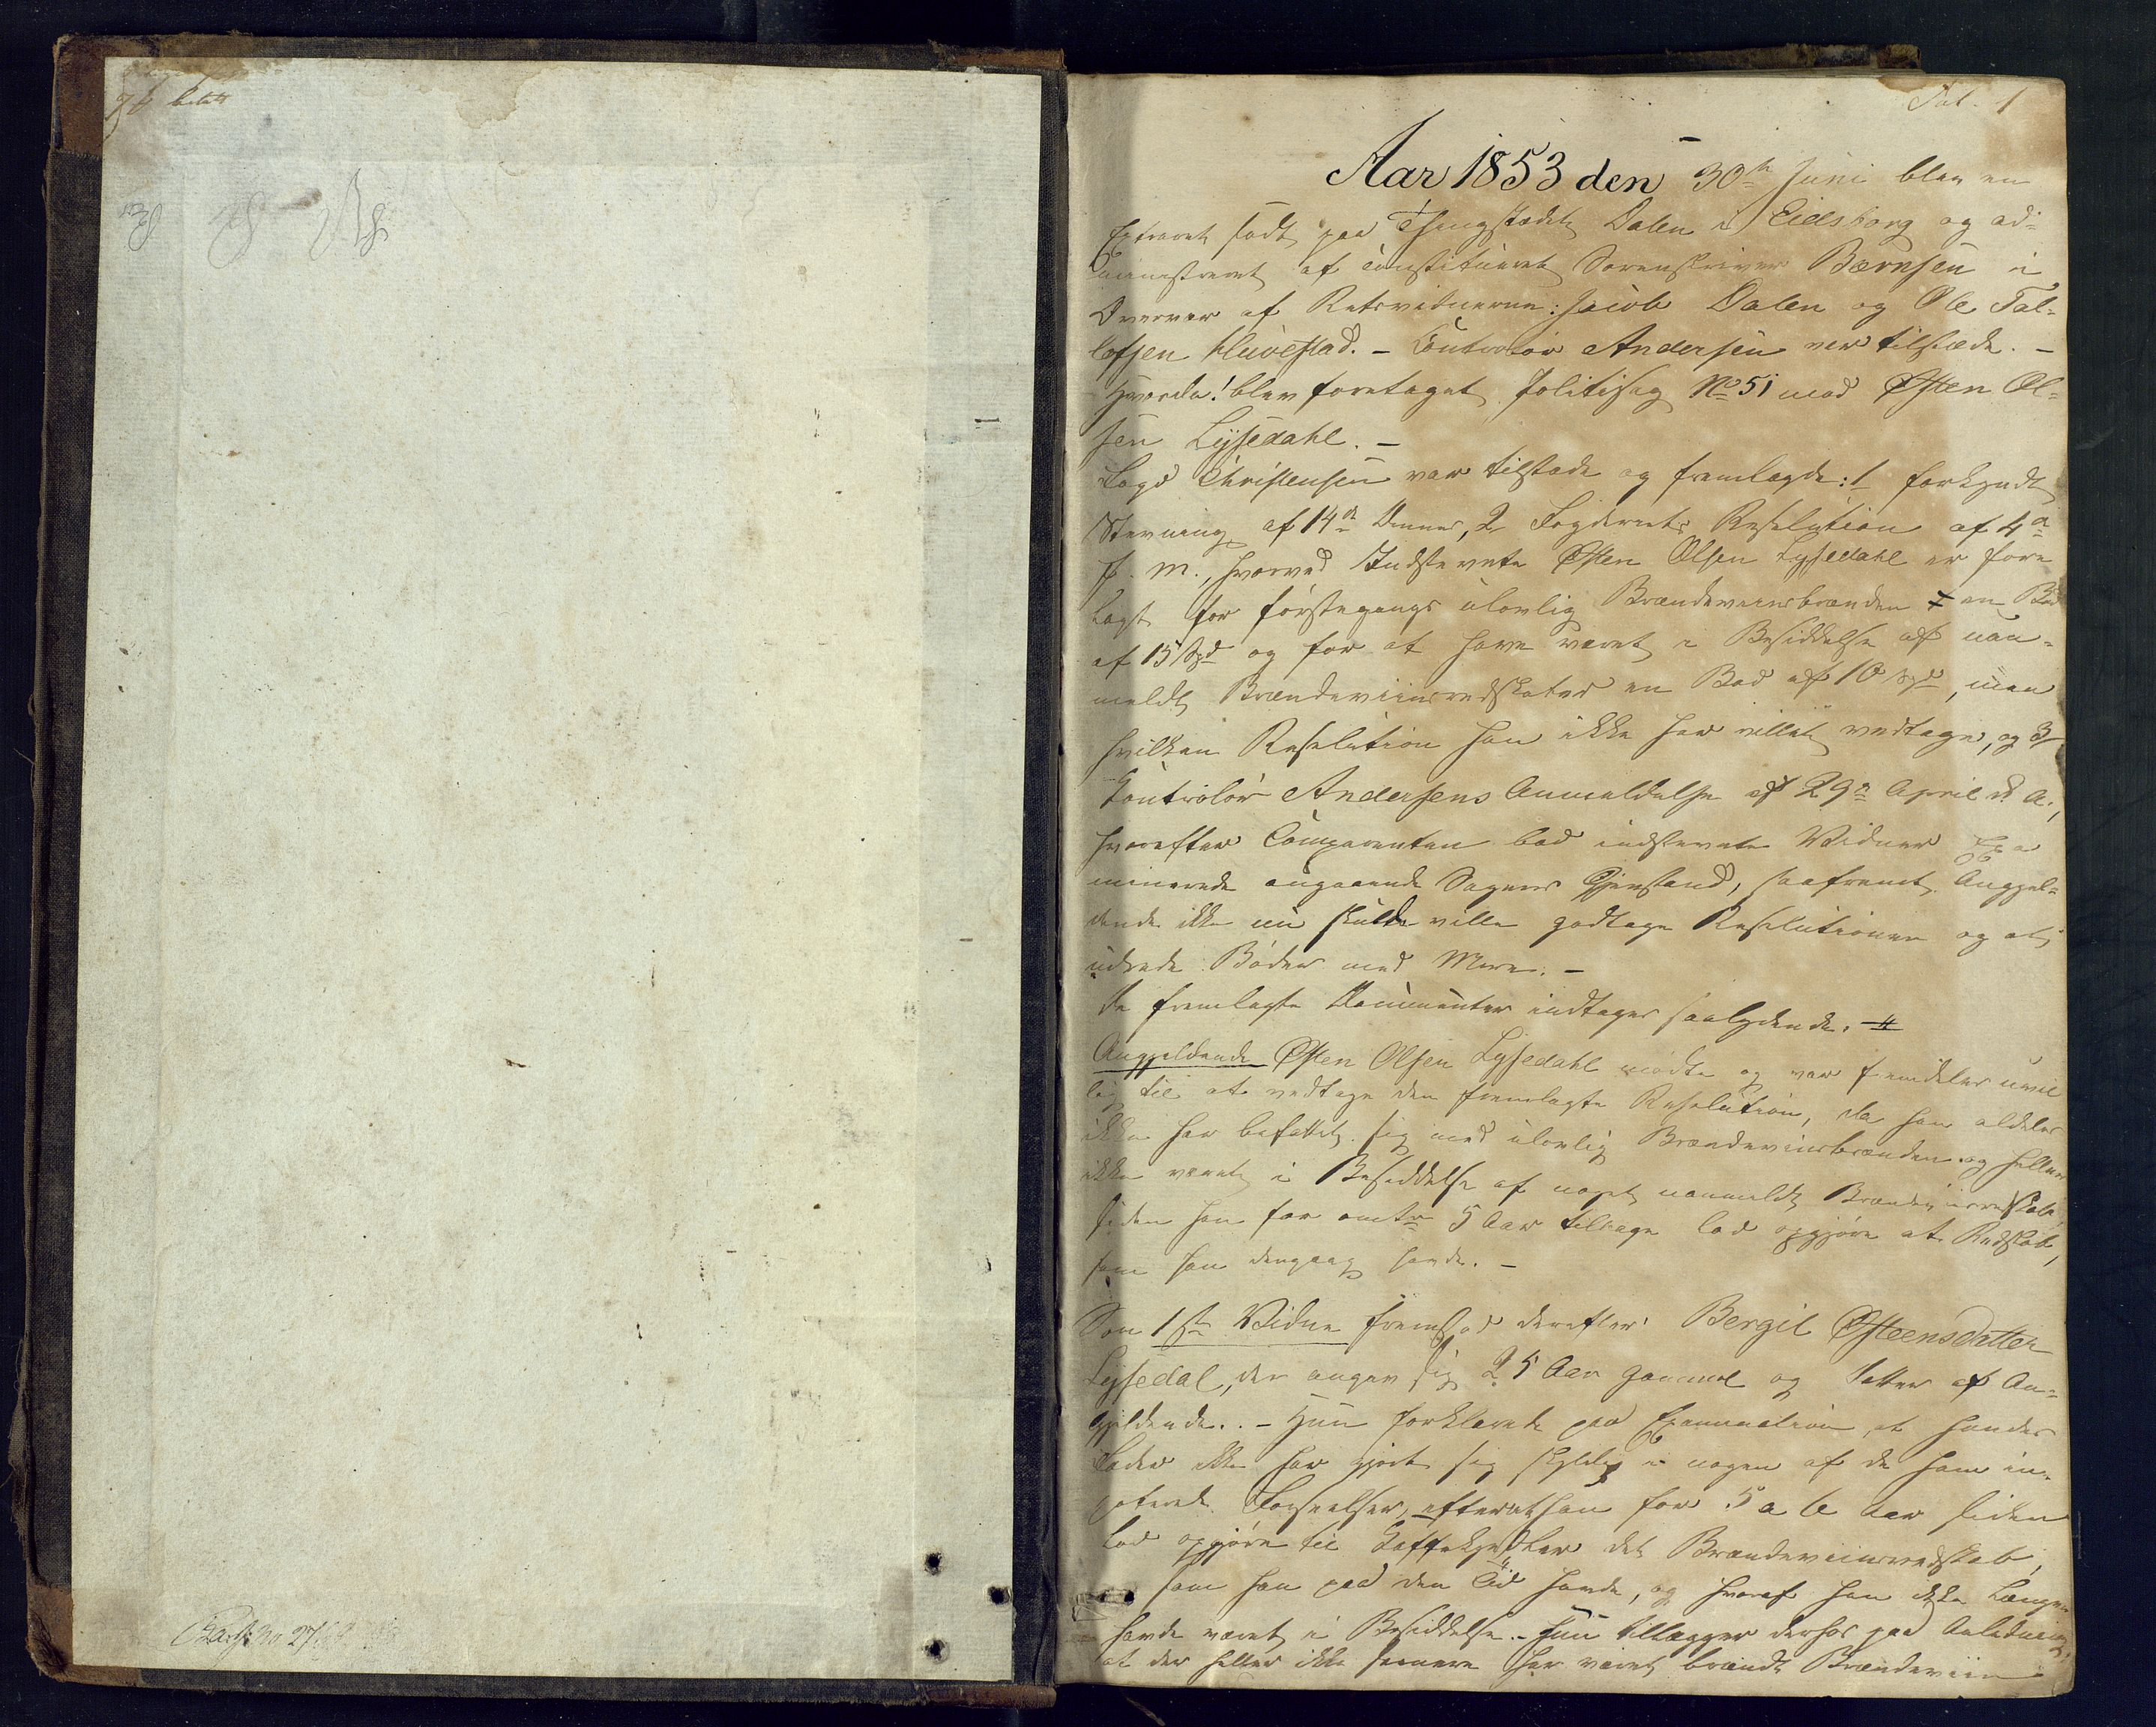 Fol. 1
Aar 1853 den 30te Juni blev en
Extraret sadt paa Thingstedet Dalen i Eidsborg og ad-
ministreret af constitueret Sorenskriver Bærnsen i
Overvær af Retsvidnerne: Jacob Dalen og Ole Tal-
lefsen Huvestad. - Controlør Andersen var tilstæde. -
Hvorda! blev foretaget Politisag No 51 mod Østen Ol-
sen Lysedahl. -
Fogd Christensen var tilstæde og fremlagde: 1 forkyndt
Stevning af 14de dennes, 2 Fogderiets Resolution af 4de
f. M., hvorved Indstevnte Østen Olsen Lysedahl er fore
lagt for førstegangs ulovlig Brændeviinsbrænden en Bod
af 15 Spd og for at have været i Besiddelse af uan-
meldt Brændeviinsredskaber en Bod af 10 Spd, men
hvilken Resolution han ikke har villet vedtage, og 3
Controlør Andersens Anmeldelse af 29de April d. A.,
hvorefter Comparenten bad indstevnte Vidner Exa
minerede angaaende Sagens Gjenstand, saafremt Angjel-
dende ikke nu skulde ville godtage Resolutionen og at
udrede Bøder med Mere. -
De fremlagte Documenter indtages saalydende. #
Angjeldende Østen Olsen Lysedahl mødte og var fremdeles uvil
lig til at vedtage den fremlagte Resolution, da han aldeles
ikke har befattet sig med ulovlig Brændeviinsbrænden og heller
ikke været i Besiddelse af noget uanmeldt Brændeviinsredskab,
siden han for omtr 5 Aar tilbage lod opgjøre et Redskab,
som han dengang havde. -
Som 1ste Vidne fremstod derefter: Bergit Østeensdatter
Lysedal, der angav sig 25 Aar gammel og Datter af An-
gjeldende. - Hun forklarede paa Examination, at hendes
Fader ikke har gjort sig skyldig i nogen af de ham im-
puterede Forseelser, efterat han for 5 a 6 Aar siden
lod opgjøre til Kaffekjedler det Brændeviinsredskab,
som han paa den Tid havde, og hvoraf han ikke længer
havde været i Besiddelse. - Hun tillægger derhos paa Anledning,
at der heller ikke senere har været brændt Brændeviin